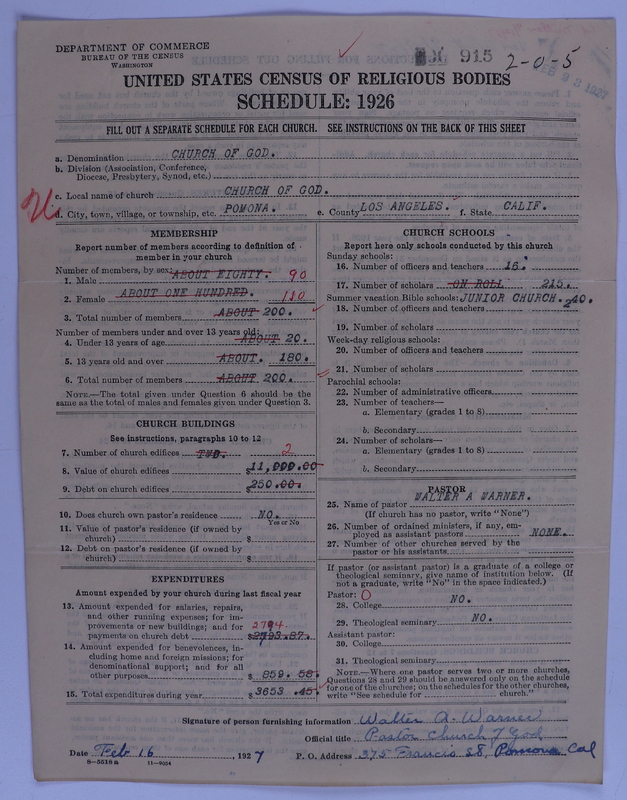 DEPARTMENT OF COMMERCE
BUREAU OF THE CENSUS
WASHINGTON
915
2-0-5
UNITED STATES CENSUS OF RELIGIOUS BODIES
SCHEDULE: 1926
FILL OUT A SEPARATE SCHEDULE FOR EACH CHURCH. SEE INSTRUCTIONS ON THE BACK OF THIS SHEET
a. Denomination CHURCH OF GOD.
b. Division (Association, Conference,
Diocese, Presbytery, Synod, etc.)
c. Local name of church CHURCH OF GOD.
d. City, town, village, or township, etc. POMONA. e. County LOS ANGELES. f. State CALIF.
MEMBERSHIP
Report number of members according to definition of
member in your church
Number of members, by sex:
1. Male ABOUT EIGHTY. 90
2. Female ABOUT ONE HUNDRED. 110
3. Total number of members ABOUT 200.
Number of members under and over 13 years old:
4. Under 13 years of age ABOUT 20.
5. 13 years old and over ABOUT. 180.
6. Total number of members ABOUT 200.
NOTE.—The total given under Question 6 should be the
same as the total of males and females given under Question 3.
CHURCH BUILDINGS
See instructions, paragraphs 10 to 12
7. Number of church edifices TWO. 2
8. Value of church edifices $11,000.00
9. Debt on church edifices $250.00.
10. Does church own pastor's residence NO.
Yes or No
11. Value of pastor's residence (if owned by
church) $
12. Debt on pastor's residence (if owned by
church) $
EXPENDITURES
Amount expended by your church during last fiscal year
13. Amount expended for salaries, repairs,
and other running expenses; for im-
provements or new buildings; and for 2794.
payments on church debt $2793.87.
14. Amount expended for benevolences, in-
cluding home and foreign missions; for
denominational support; and for all
other purposes $ 859.58.
15. Total expenditures during year $3653.45.
CHURCH SCHOOLS
Report here only schools conducted by this church
Sunday schools:
16. Number of officers and teachers 16.
17. Number of scholars ON ROLL 215.
Summer vacation Bible schools: JUNIOR CHURCH. 40.
18. Number of officers and teachers
19. Number of scholars
Week-day religious schools:
20. Number of officers and teachers
21. Number of scholars
Parochial schools:
22. Number of administrative officers
23. Number of teachers—
a. Elementary (grades 1 to 8)
b. Secondary
24. Number of scholars—
a. Elementary (grades 1 to 8)
b. Secondary
PASTOR
25. Name of pastor WALTER A WARNER.
(If church has no pastor, write "None")
26. Number of ordained ministers, if any, em-
ployed as assistant pastors NONE.
27. Number of other churches served by the
pastor or his assistants
If pastor (or assistant pastor) is a graduate of a college or
theological seminary, give name of institution below. (If
not a graduate, write "No" in the space indicated.)
Pastor: O
28. College NO.
29. Theological seminary NO.
Assistant pastor:
30. College
31. Theological seminary
NOTE.—Where one pastor serves two or more churches,
Questions 28 and 29 should be answered only on the schedule
for one of the churches; on the schedules for the other churches,
write "See schedule for church."
Signature of person furnishing information Walter A. Warner
Official title Pastor Church of God
Date Feb 16, 1927 P. O. Address 375 Francis St, Pomona Cal
8-5518 a 11-9054